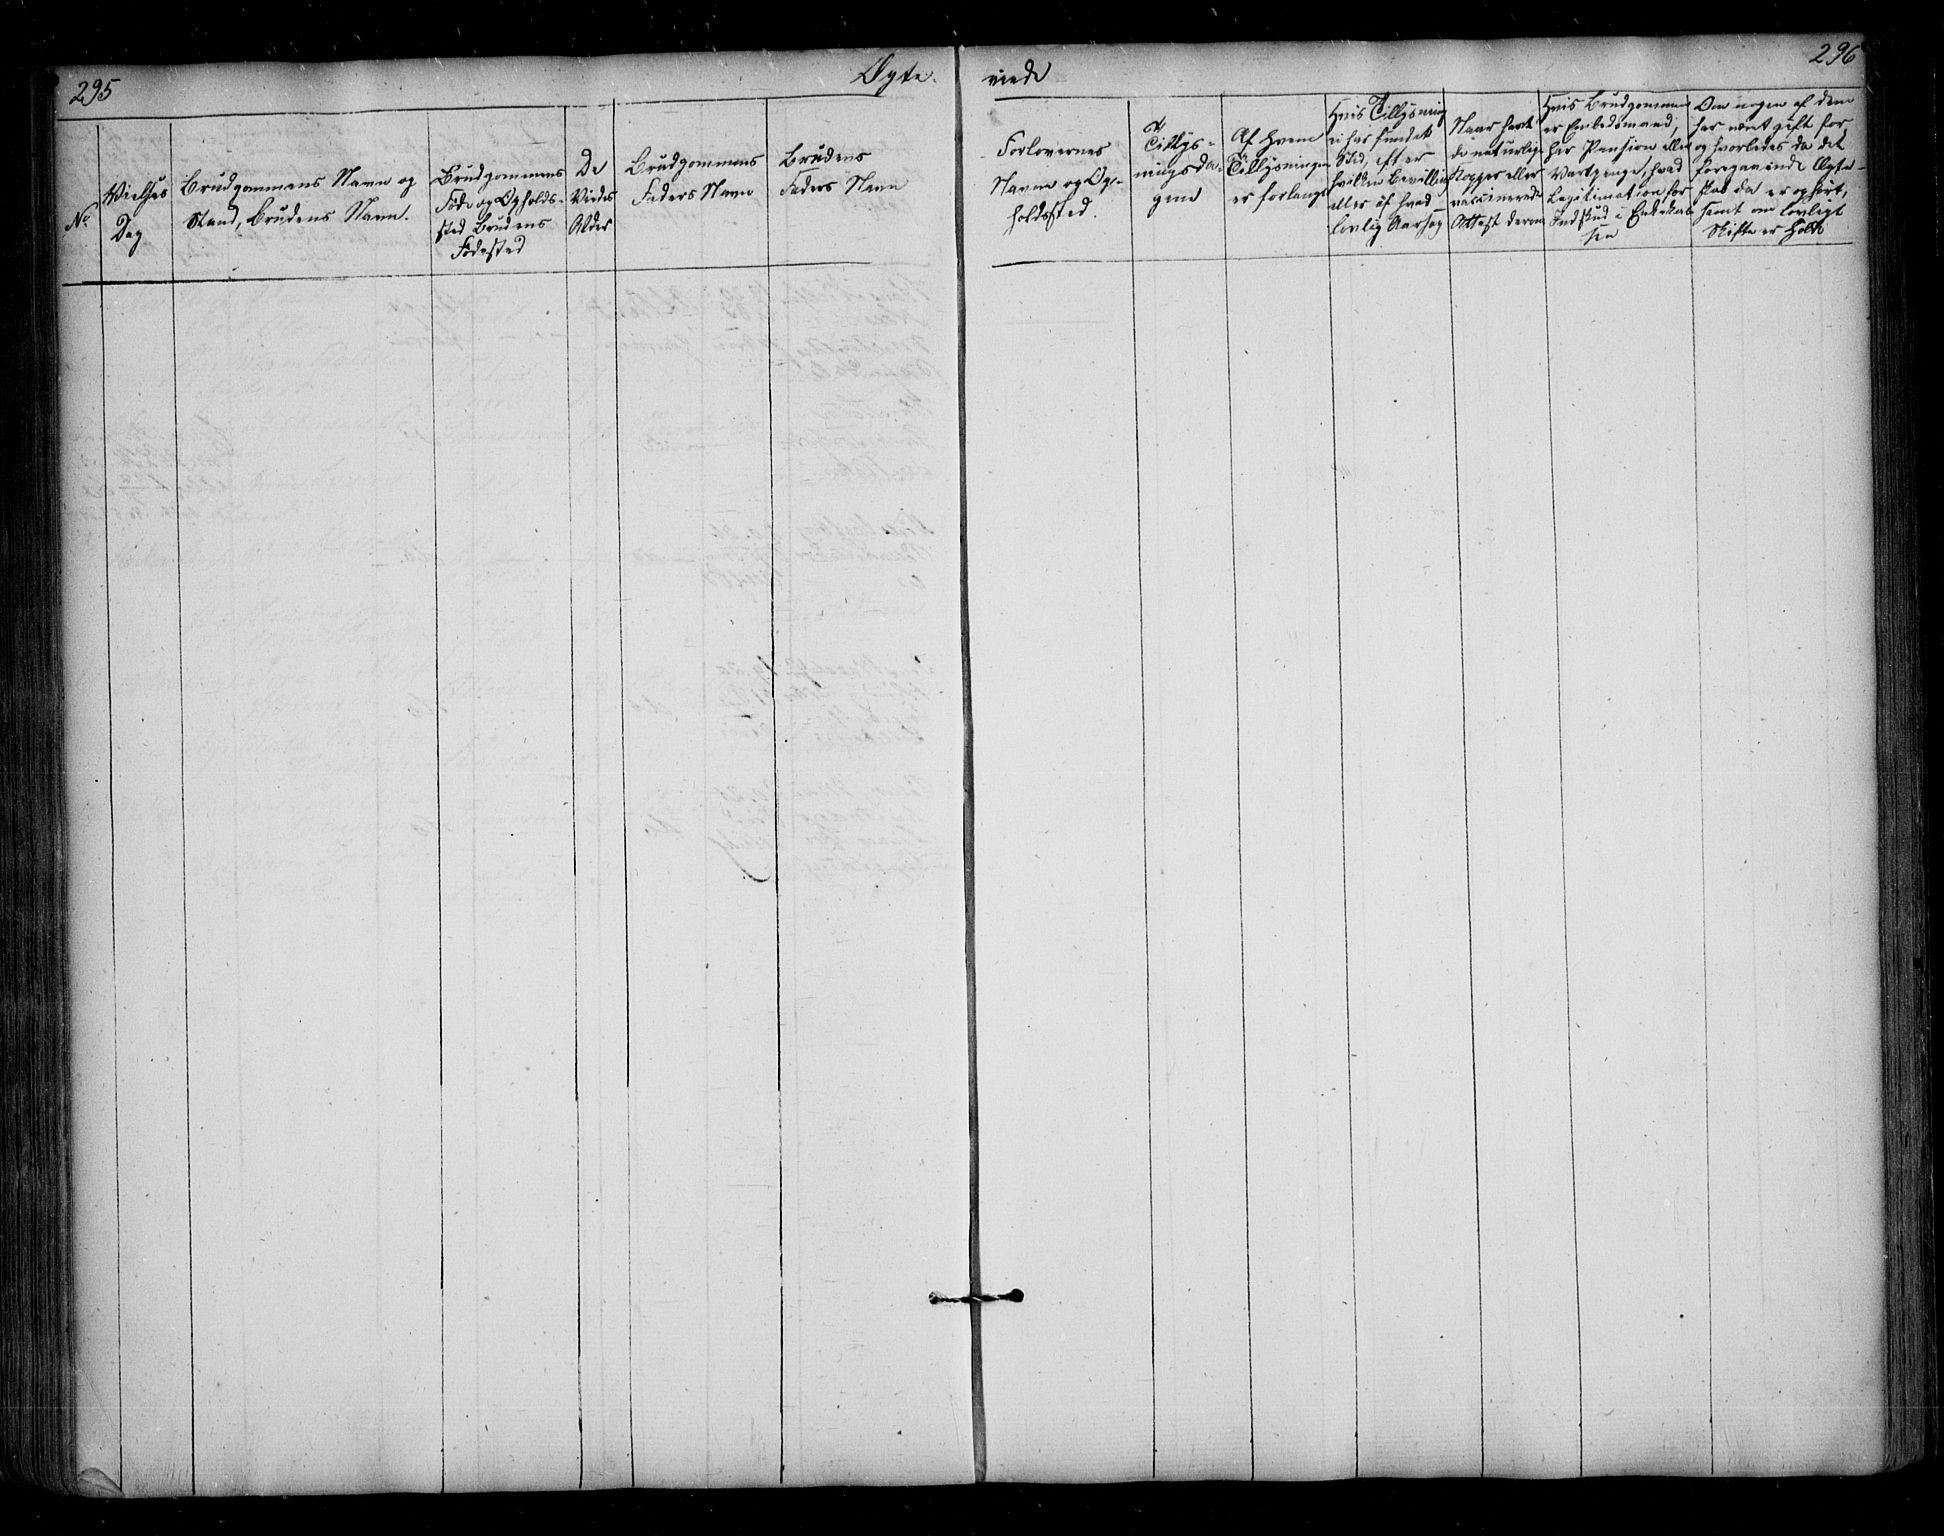 295
Ægte-
viede
296
No
Vielses
Dag
Brudgommens Navn og
Stand, Brudens Navn.
Brudgommens
Føde og Opholds-
sted Brudens
Fødested
De
Viedes
Alder
Brudgommens
Faders Navn
Brudens
Faders Navn
Forlovernes
Navne og Op-
holdssted.
Tillys-
nings Da-
gene
Af Hvem
Tillysningen
er forlangt
Hvis Tillysning
ei har fundet
Sted, efter
hvilken Bevilling
eller af hvad
lovlig Aarsag
Naar havt
de naturlige
Kopper eller
vaccinerede
Attest derom
Hvis Brudgommen
er Embedsmand,
har Pension eller
Vartpenge, hvad
Legitimation for
Indskud i Enkekas
sen
Om nogen af dem
har været gift før
og hvorledes da det
foregaaende Ægte-
skab da er ophørt,
samt om lovligt
Skifte er holdt